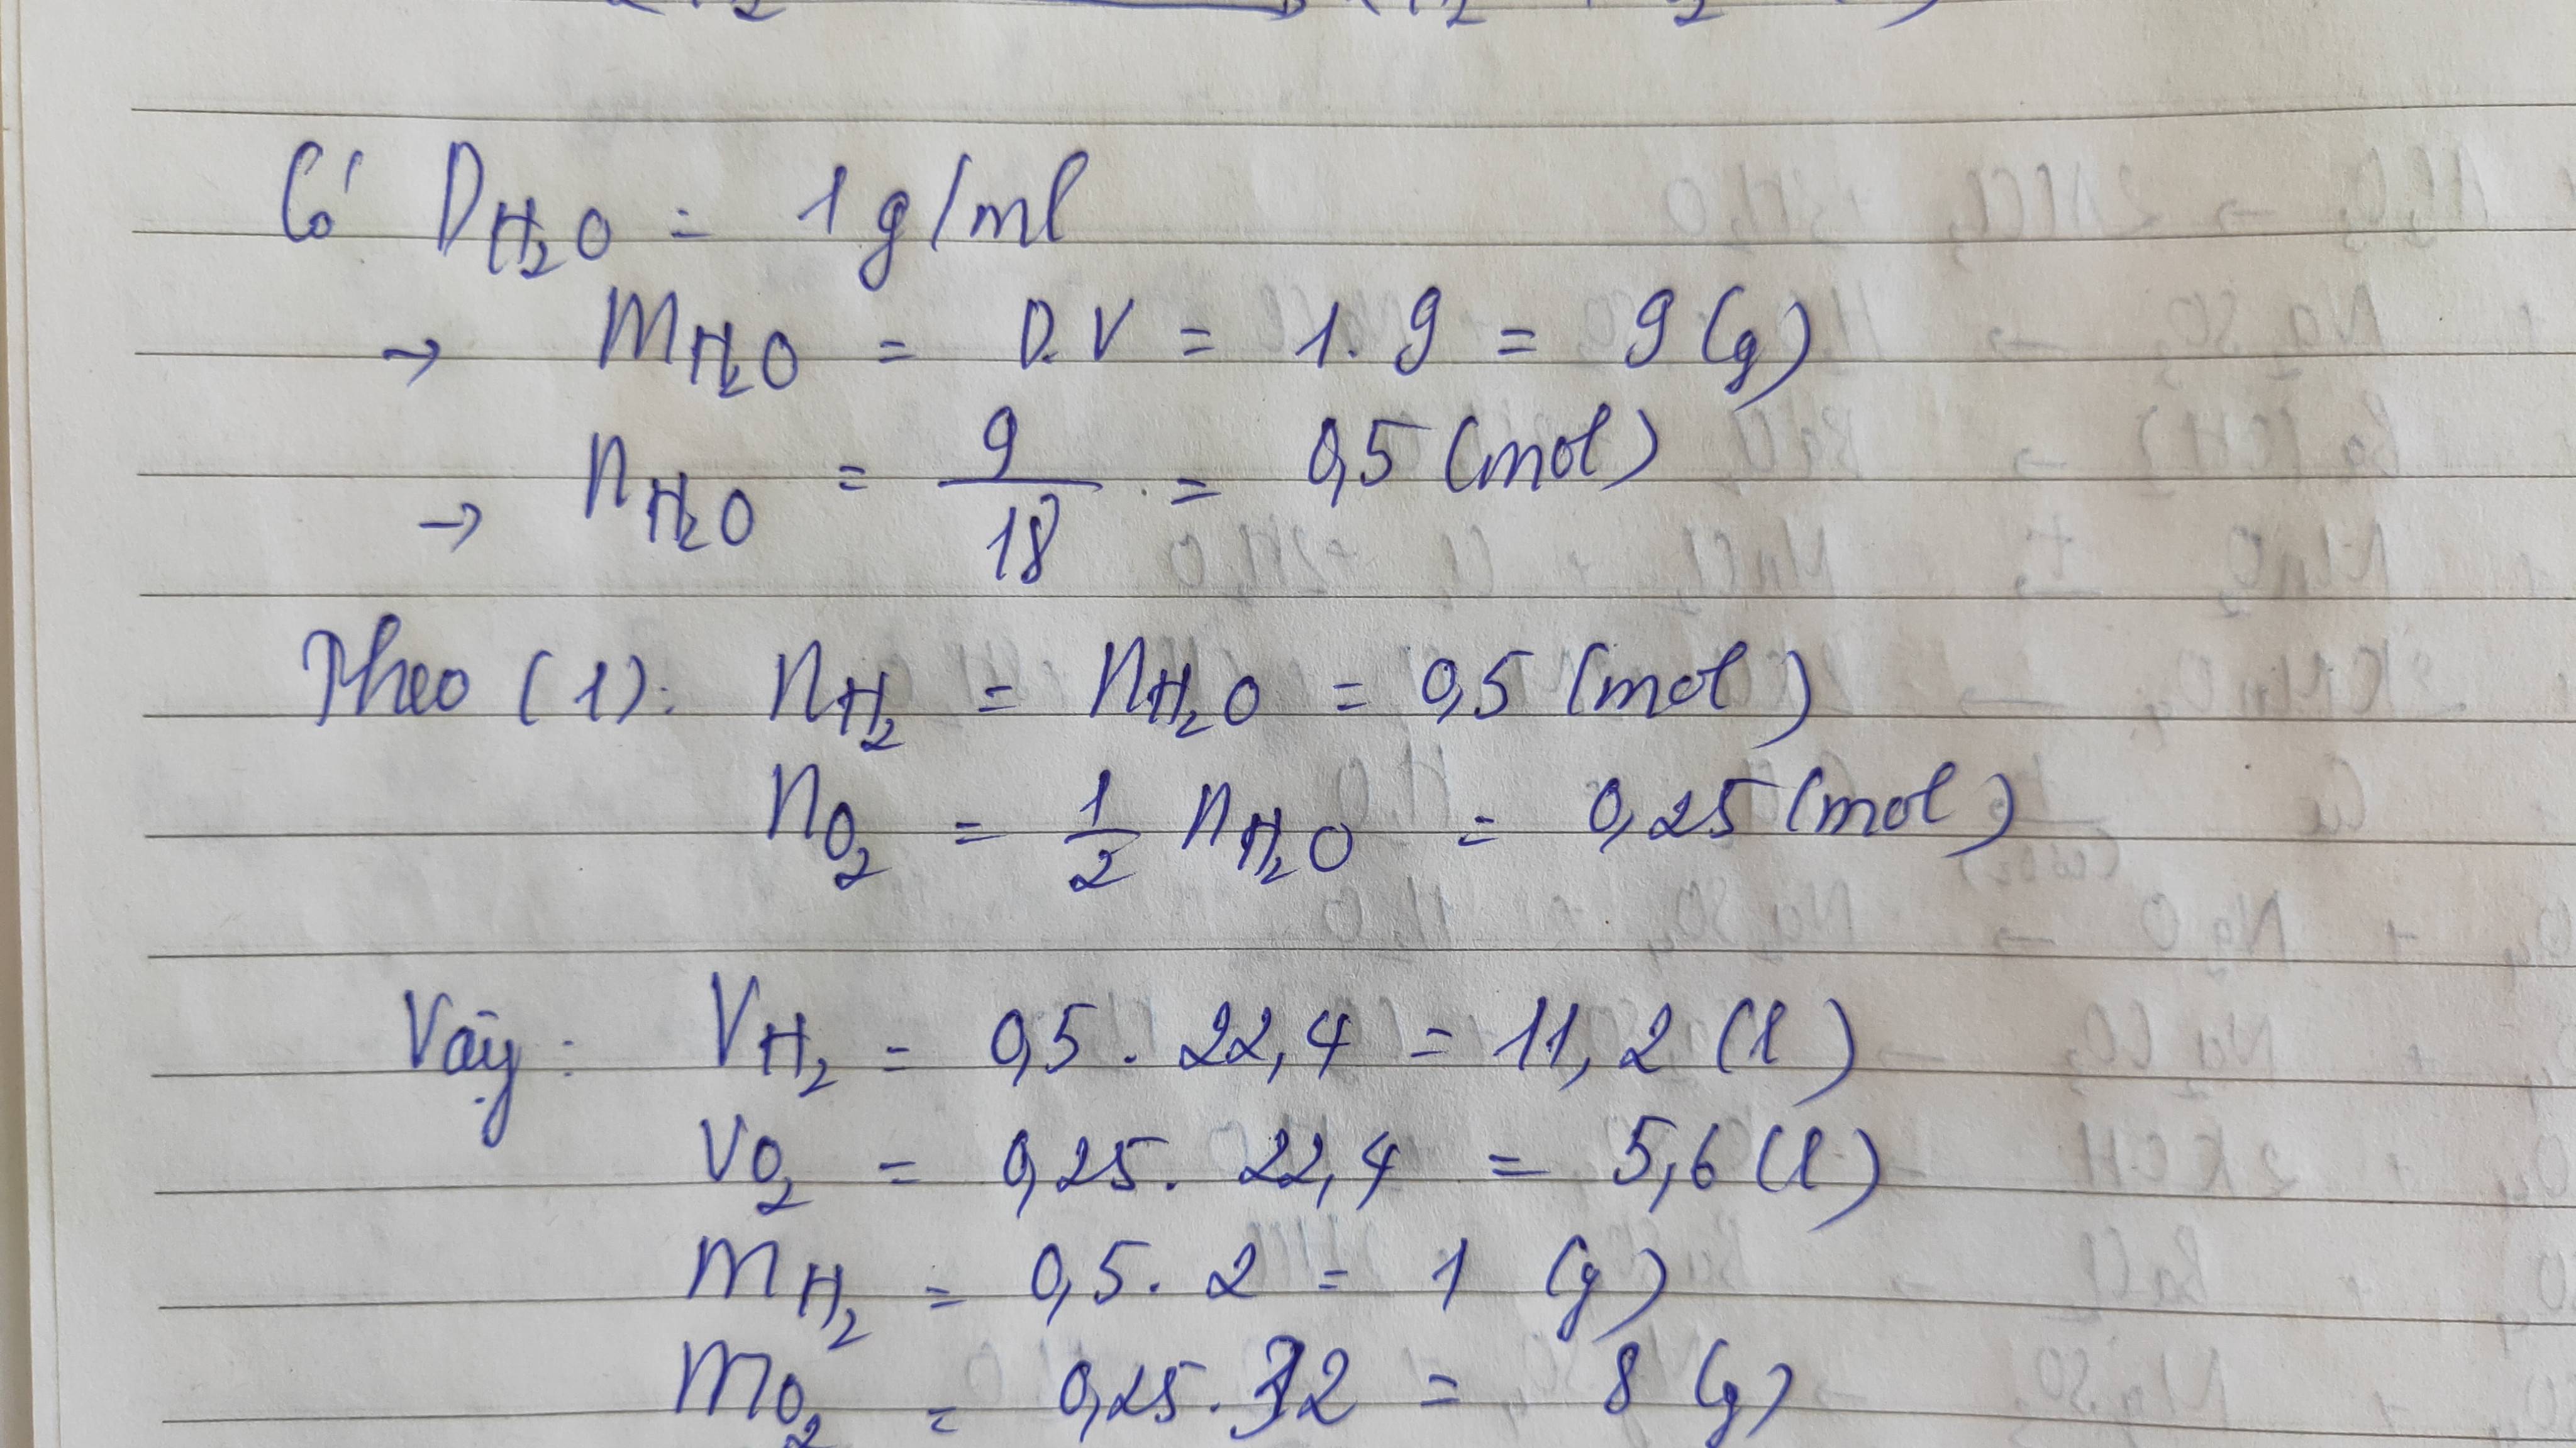 Có D_{H₂O} = 1 g/ml
→ m_{H₂O} = D.V = 1.9 = 9 (g)
→ n_{H₂O} = 9/18 = 0,5 (mol)
Theo (1): n_{H₂} = n_{H₂O} = 0,5 (mol)
n_{O₂} = 1/2 n_{H₂O} = 0,25 (mol)
Vậy: V_{H₂} = 0,5 . 22,4 = 11,2 (l)
V_{O₂} = 0,25 . 22,4 = 5,6 (l)
m_{H₂} = 0,5 . 2 = 1 (g)
m_{O₂} = 0,25 . 32 = 8 (g)